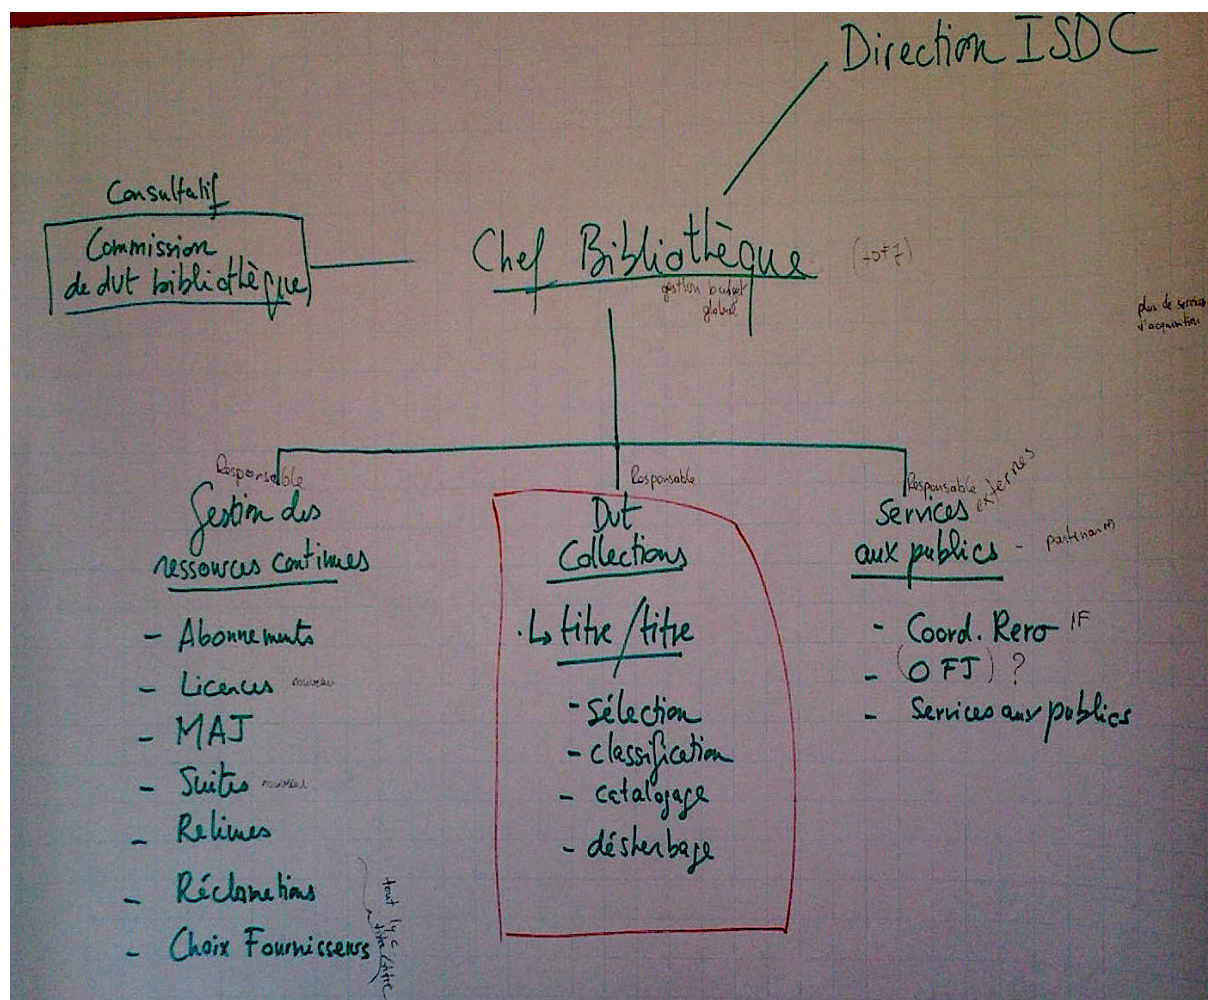 Direction ISDC
Consultatif
Commission
de dvt bibliothèque
Chef Bibliothèque
gestion budget
global
plus de services
d'acquisition
Responsable
Gestion des
ressources continues
- Abonnements
- Licences nouveau
- MAJ
- Suites nouveau
- Reliures
- Réclamations
- Choix Fournisseurs
tout
titre/titre
Responsable
Dvt
Collections
titre/titre
- Sélection
- classification
- catalogage
- désherbage
Responsable
Services externes
aux publics - partenaires
- Coord. Rero IF
- (OFJ) ?
- Services aux publics